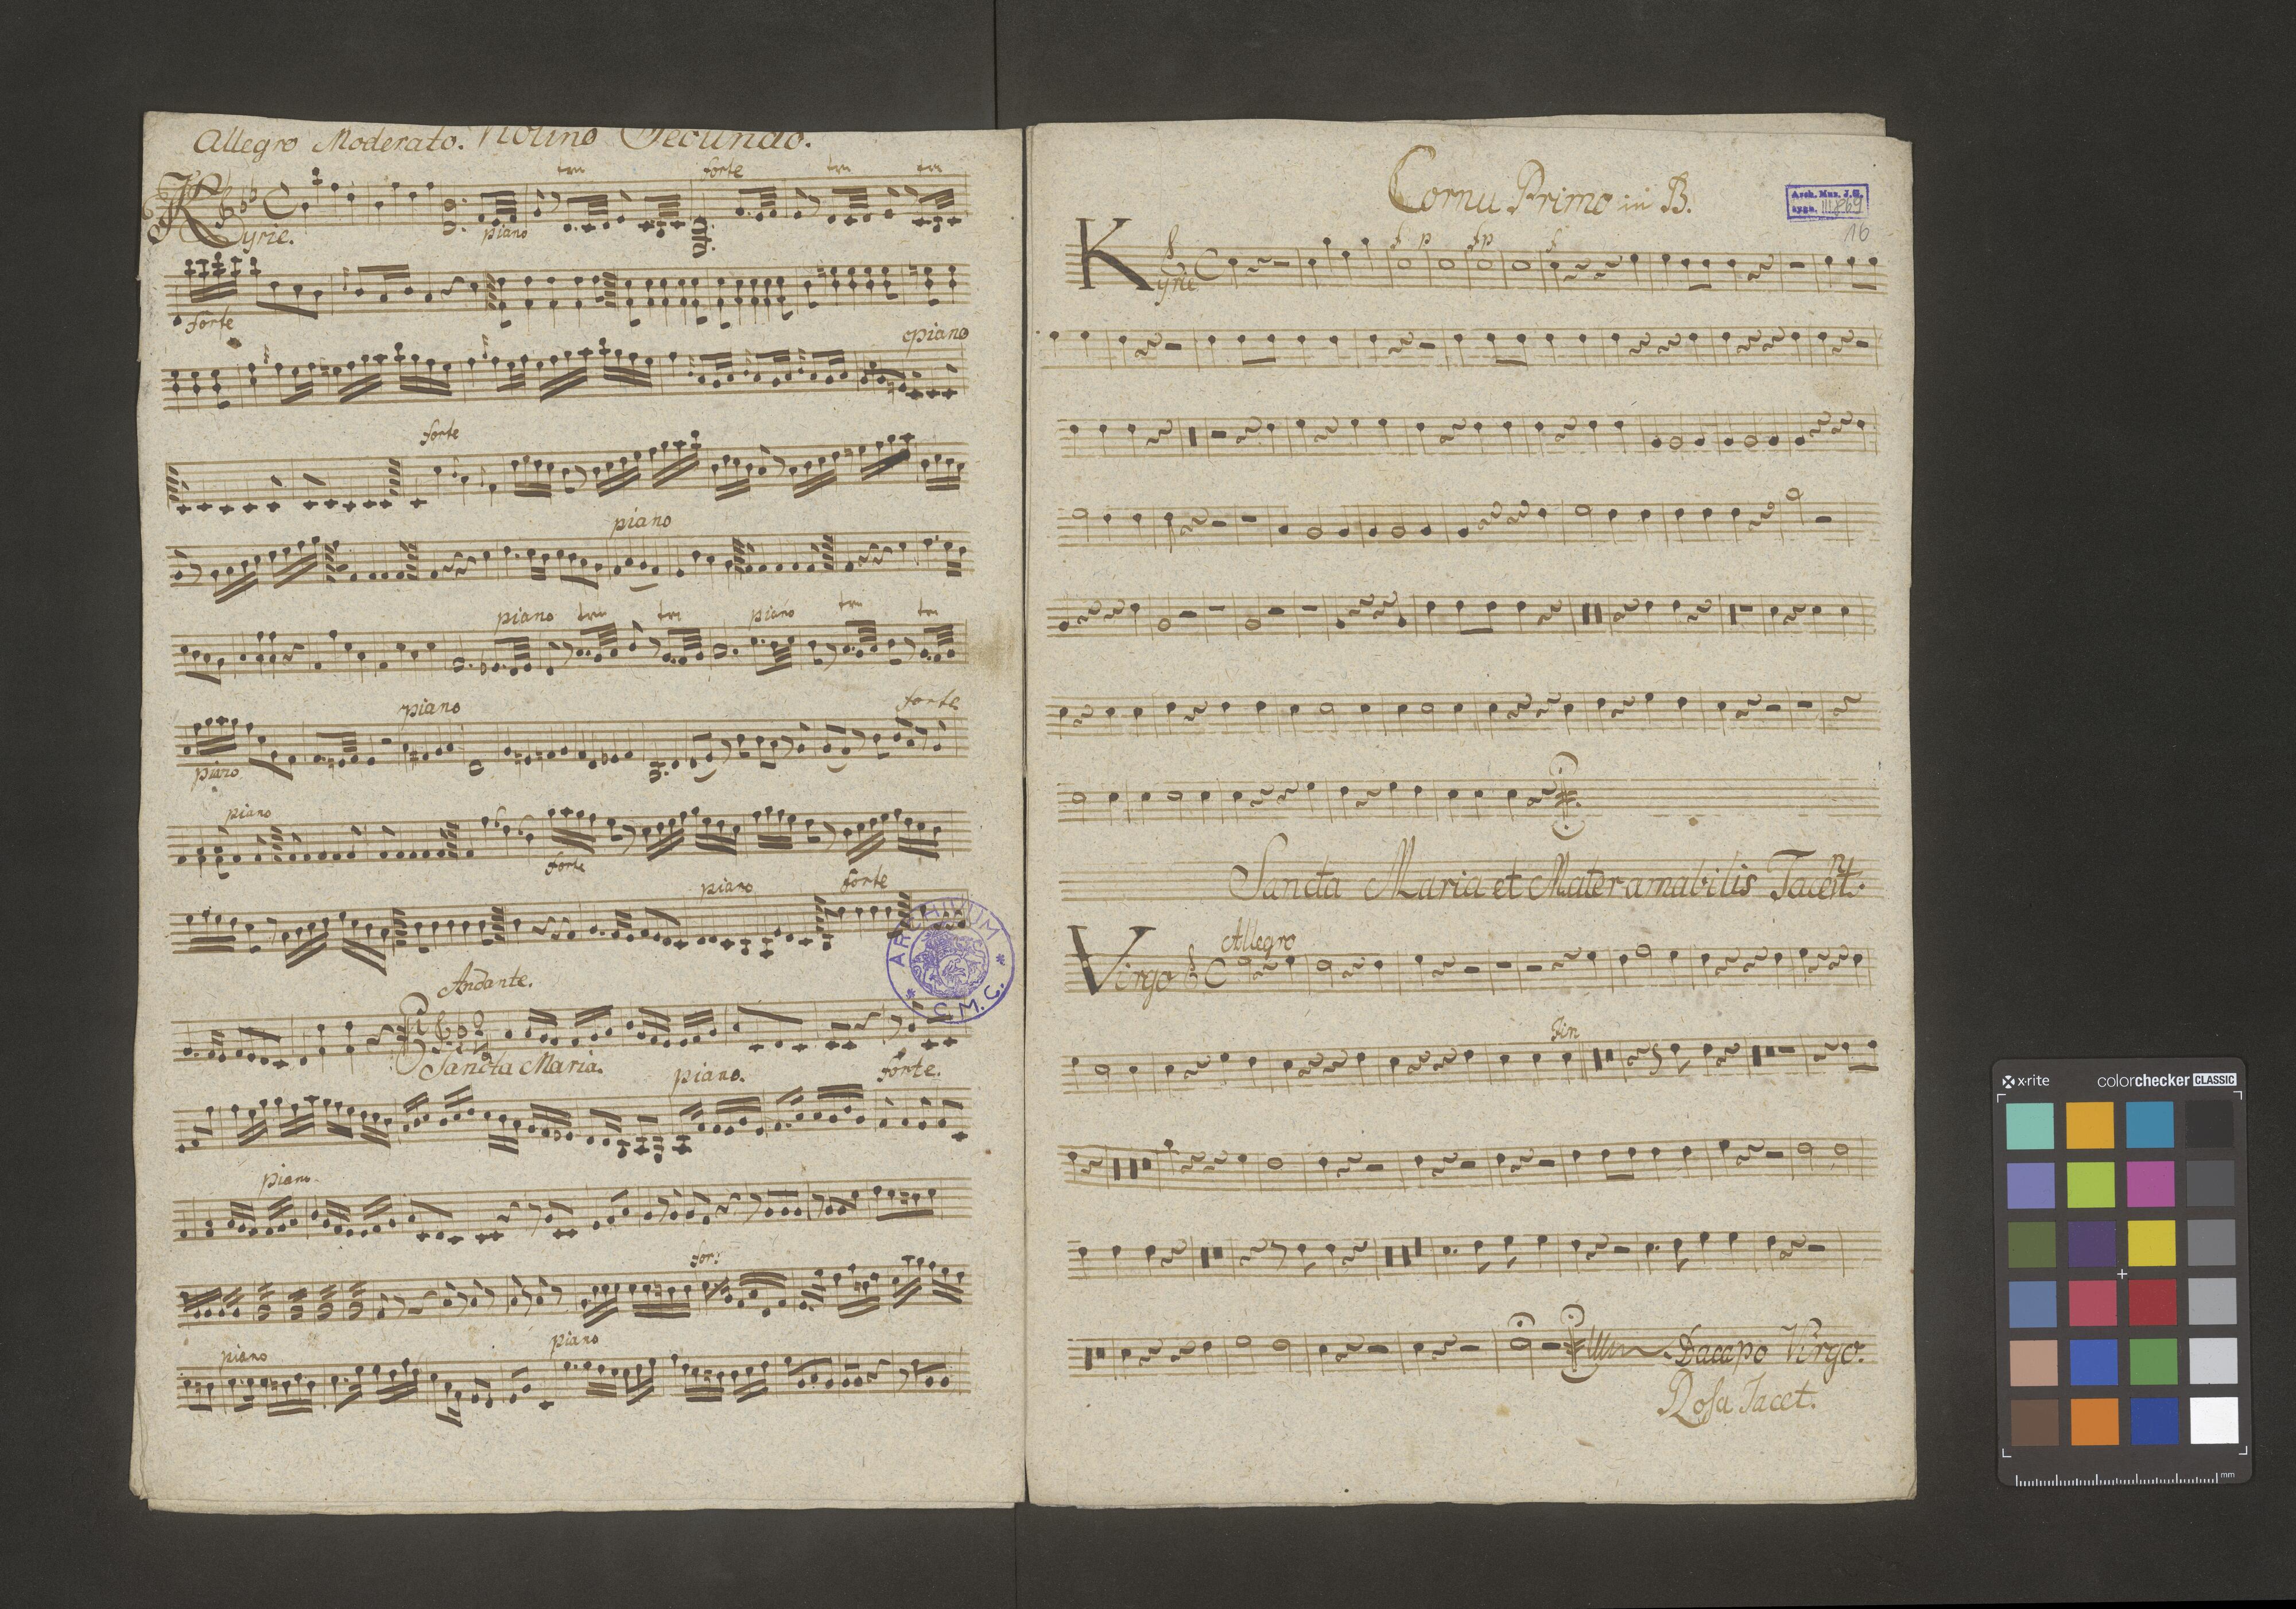 Allegro Moderato. Violino Secundo.
tr tr tr
forte
Kyrie.
piano
forte
piano
forte
piano
piano tr tr piano tr tr
piano
forte
piano
piano
forte
piano
forte
Andante.
Sancta Maria.
piano.
forte.
piano
for:
piano
piano
ARCHIVUM
C.M.C.
Cornu Primo in B.
Arch. Muz. J.G.
sygn. III 869
16
f p fp f
Kyrie
Sancta Maria et Mater amabilis Tacent.
Allegro
Virgo
Fin
Dacapo Virgo.
Rosa Tacet.
x·rite
colorchecker CLASSIC
mm